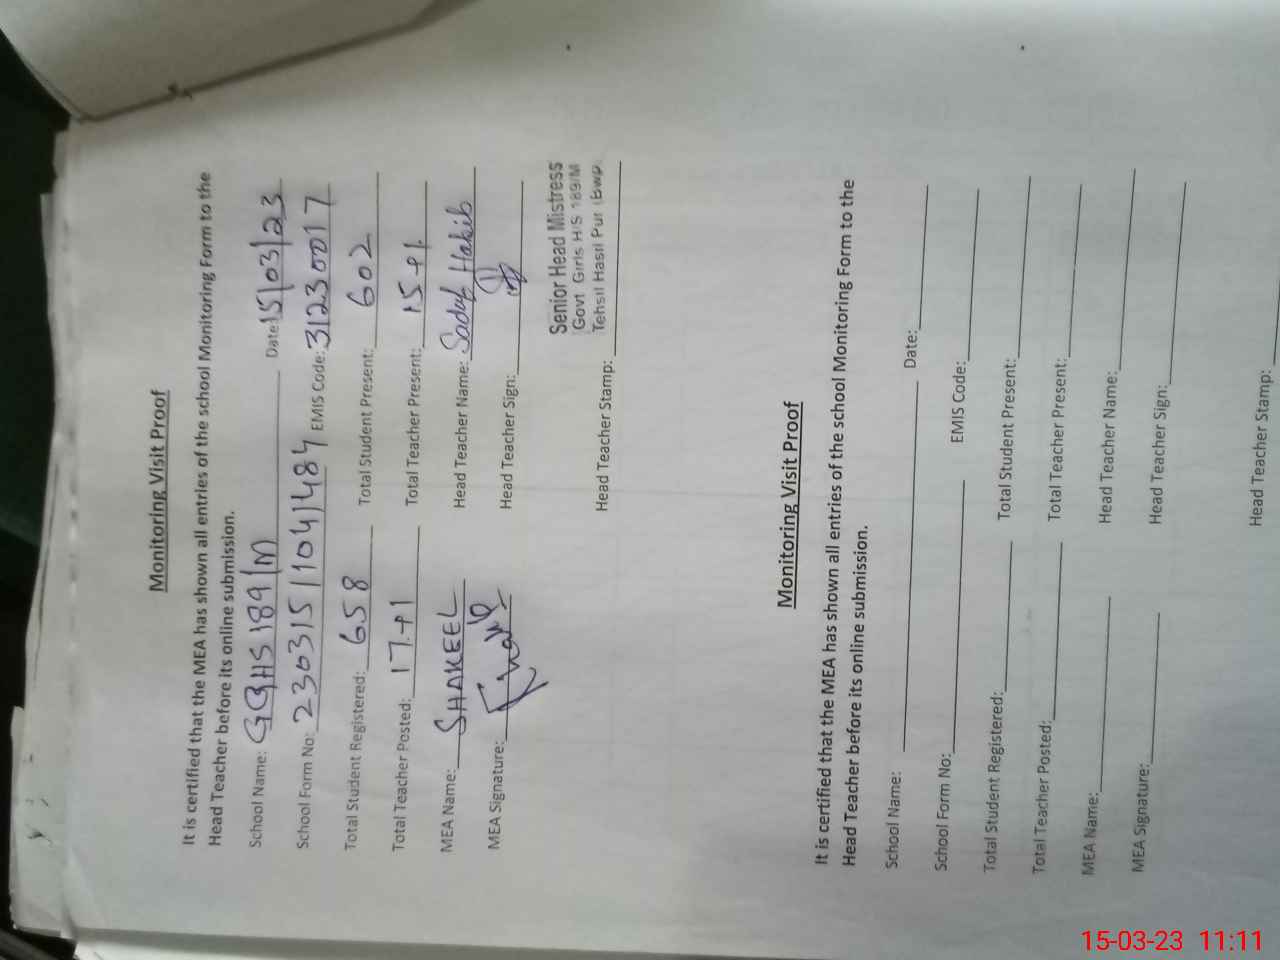 Monitoring Visit Proof
It is certified that the MEA has shown all entries of the school Monitoring Form to the
Head Teacher before its online submission.
School Name: GGHS 189/M Date: 15/03/23
School Form No: 230315 1104 1484 EMIS Code: 31230017
Total Student Registered: 658 Total Student Present: 602
Total Teacher Posted: 17+1 Total Teacher Present: 15+1
MEA Name: SHAKEEL Head Teacher Name: Sadaf Habib
MEA Signature: Head Teacher Sign:
Senior Head Mistress
Govt Girls H/S 189/M
Tehsil Hasil Pur (Bwp)
Head Teacher Stamp:
Monitoring Visit Proof
It is certified that the MEA has shown all entries of the school Monitoring Form to the
Head Teacher before its online submission.
School Name: Date:
School Form No: EMIS Code:
Total Student Registered: Total Student Present:
Total Teacher Posted: Total Teacher Present:
MEA Name: Head Teacher Name:
MEA Signature: Head Teacher Sign:
Head Teacher Stamp:
15-03-23 11:11